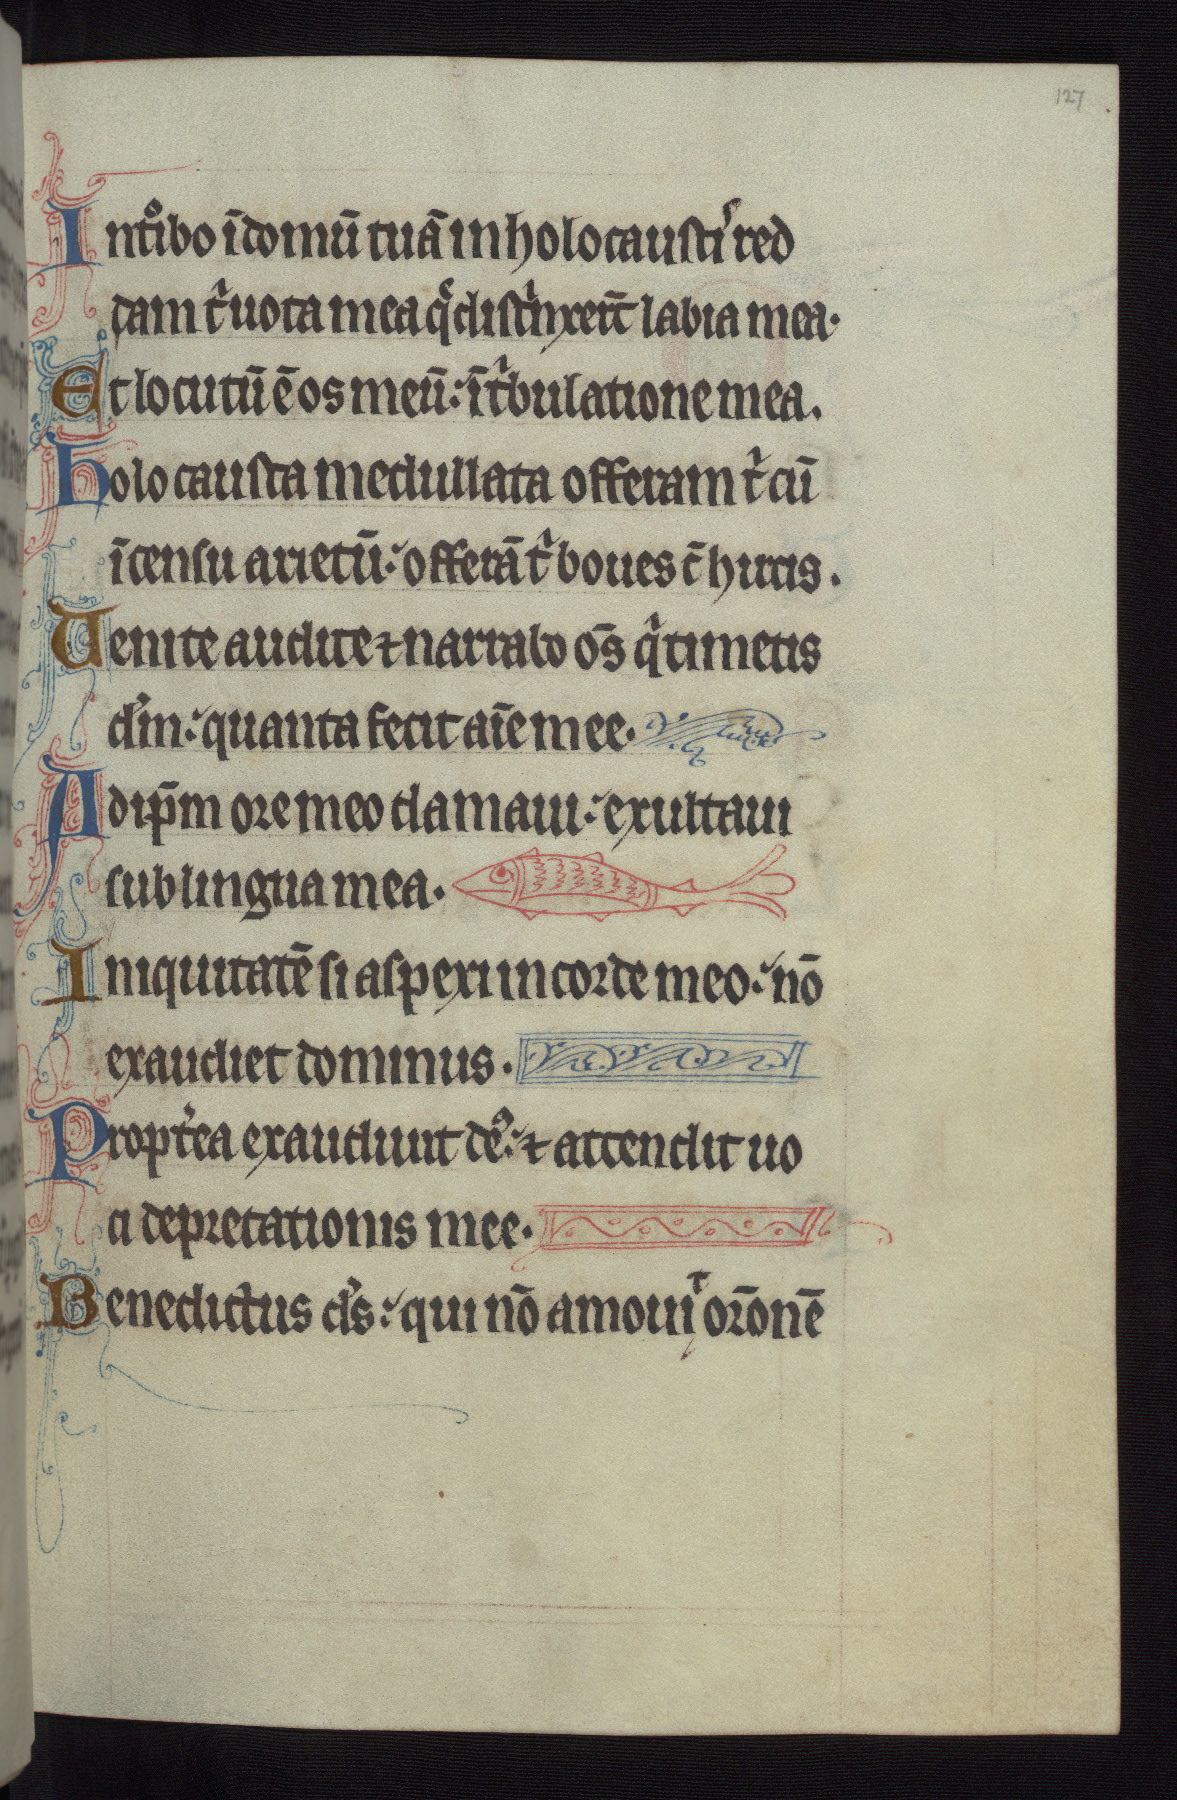 127
Intͦibo īdomū tuā in holocausti᷑ red
dam tⁱ uota mea q̄ distⁱnxer̄t labia mea·
Et locutū ē os meū: ī tⁱbulatione mea.
holocausta medullata offeram tⁱ cū
īcensu arietū: offerā tⁱ boues c̄ hircis.
Uenite audite ⁊ narrabo om̄s qⁱ timetis
dn̄m: quanta fecit aīe mee·
Ad ip̄m ore meo clamaui: exultaui
sub lingua mea·
Iniquitatē si aspexi in corde meo: nō
exaudiet dominus.
Propt̾ea exaudiuit de᷒: ⁊ attendit uo
ci depretationis mee·
Benedictus dn̄s: qui nō amouiͭ or̄onē